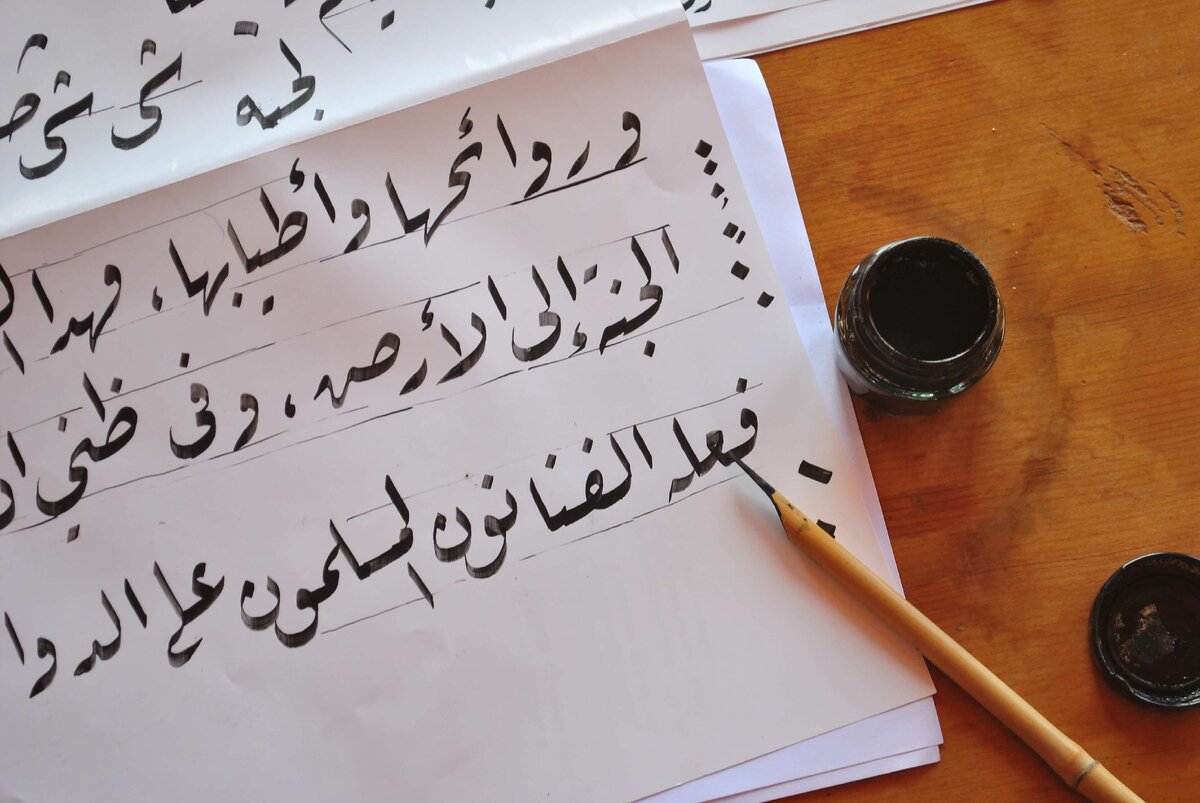 لجنة
وروائحها وأطيابها، فهدا
الجنة إلى الأرض، وفى ظني
فعله الفنانون المسلمون على الدوا